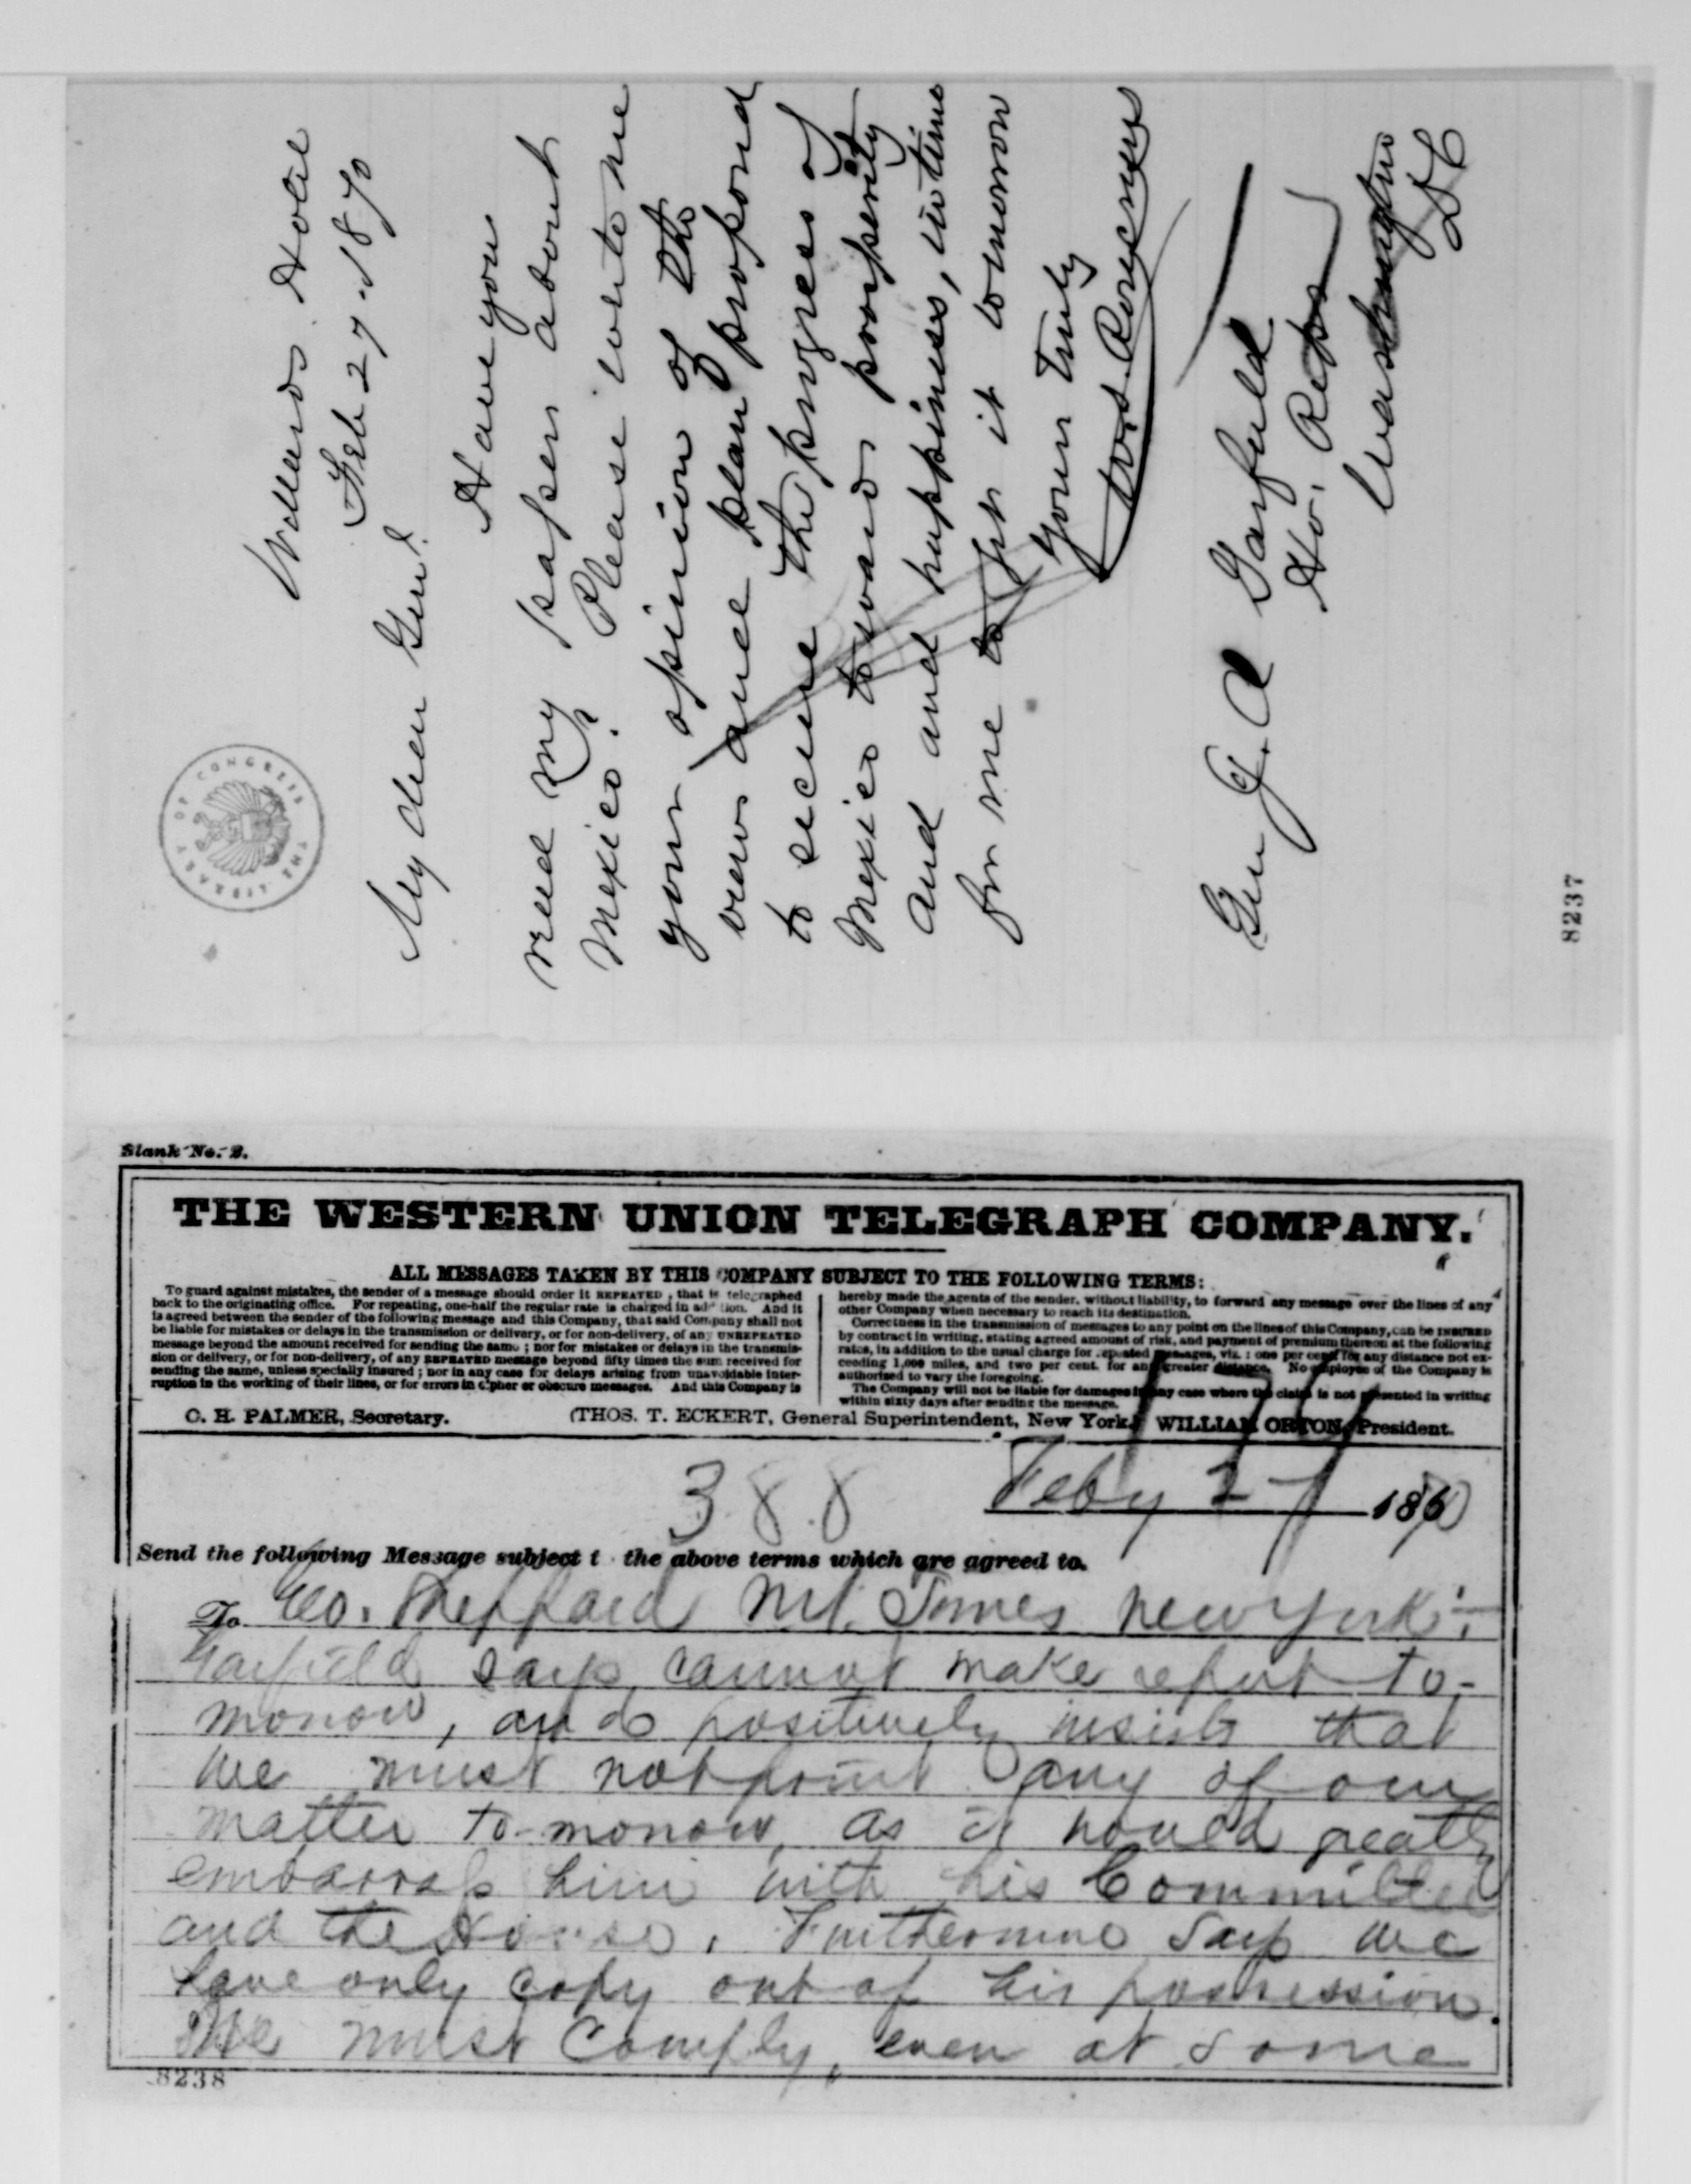 Willards Hotel
Feb 27. 1870
My dear Genl.
Have you
read my paper about
Mexico? Please write me
your opinion of the
views and plan proposed
to secure the progress of
Mexico towards prosperity
and and happiness, in time
for me to get it tomorrow
Yours truly
W.S. Rosecrans
Gen J. A Garfield
Ho. Reps
Washington
DC
THE LIBRARY OF CONGRESS
8237
Blank No. 2.
THE WESTERN UNION TELEGRAPH COMPANY.
ALL MESSAGES TAKEN BY THIS COMPANY SUBJECT TO THE FOLLOWING TERMS:
To guard against mistakes, the sender of a message should order it REPEATED; that is telegraphed
back to the originating office. For repeating, one-half the regular rate is charged in addition. And it
is agreed between the sender of the following message and this Company, that said Company shall not
be liable for mistakes or delays in the transmission or delivery, or for non-delivery, of any UNREPEATED
message beyond the amount received for sending the same; nor for mistakes or delays in the transmis-
sion or delivery, or for non-delivery, of any REPEATED message beyond fifty times the sum received for
sending the same, unless specially insured; nor in any case for delays arising from unavoidable inter-
ruption in the working of their lines, or for errors in cipher or obscure messages. And this Company is
hereby made the agents of the sender, without liability, to forward any message over the lines of any
other Company when necessary to reach its destination.
Correctness in the transmission of messages to any point on the lines of this Company, can be INSURED
by contract in writing, stating agreed amount of risk, and payment of premium thereon at the following
rates, in addition to the usual charge for repeated messages, viz.: one per cent for any distance not ex-
ceeding 1,000 miles, and two per cent. for any greater distance. No employee of the Company is
authorized to vary the foregoing.
The Company will not be liable for damages in any case where the claim is not presented in writing
within sixty days after sending the message.
O. H. PALMER, Secretary.
(THOS. T. ECKERT, General Superintendent, New York.)
WILLIAM ORTON, President.
388
Feby 27 1870
Send the following Message subject to the above terms which are agreed to.
To Geo. Sheppard N.Y. Times New York:—
Garfield says cannot make report to-
morrow, and positively insists that
we must not print any of our
matter to-morrow, as it would greatly
embarrass him with his Committee
and the House. Furthermore says we
have only copy out of his possession.
We must comply, even at some
8238